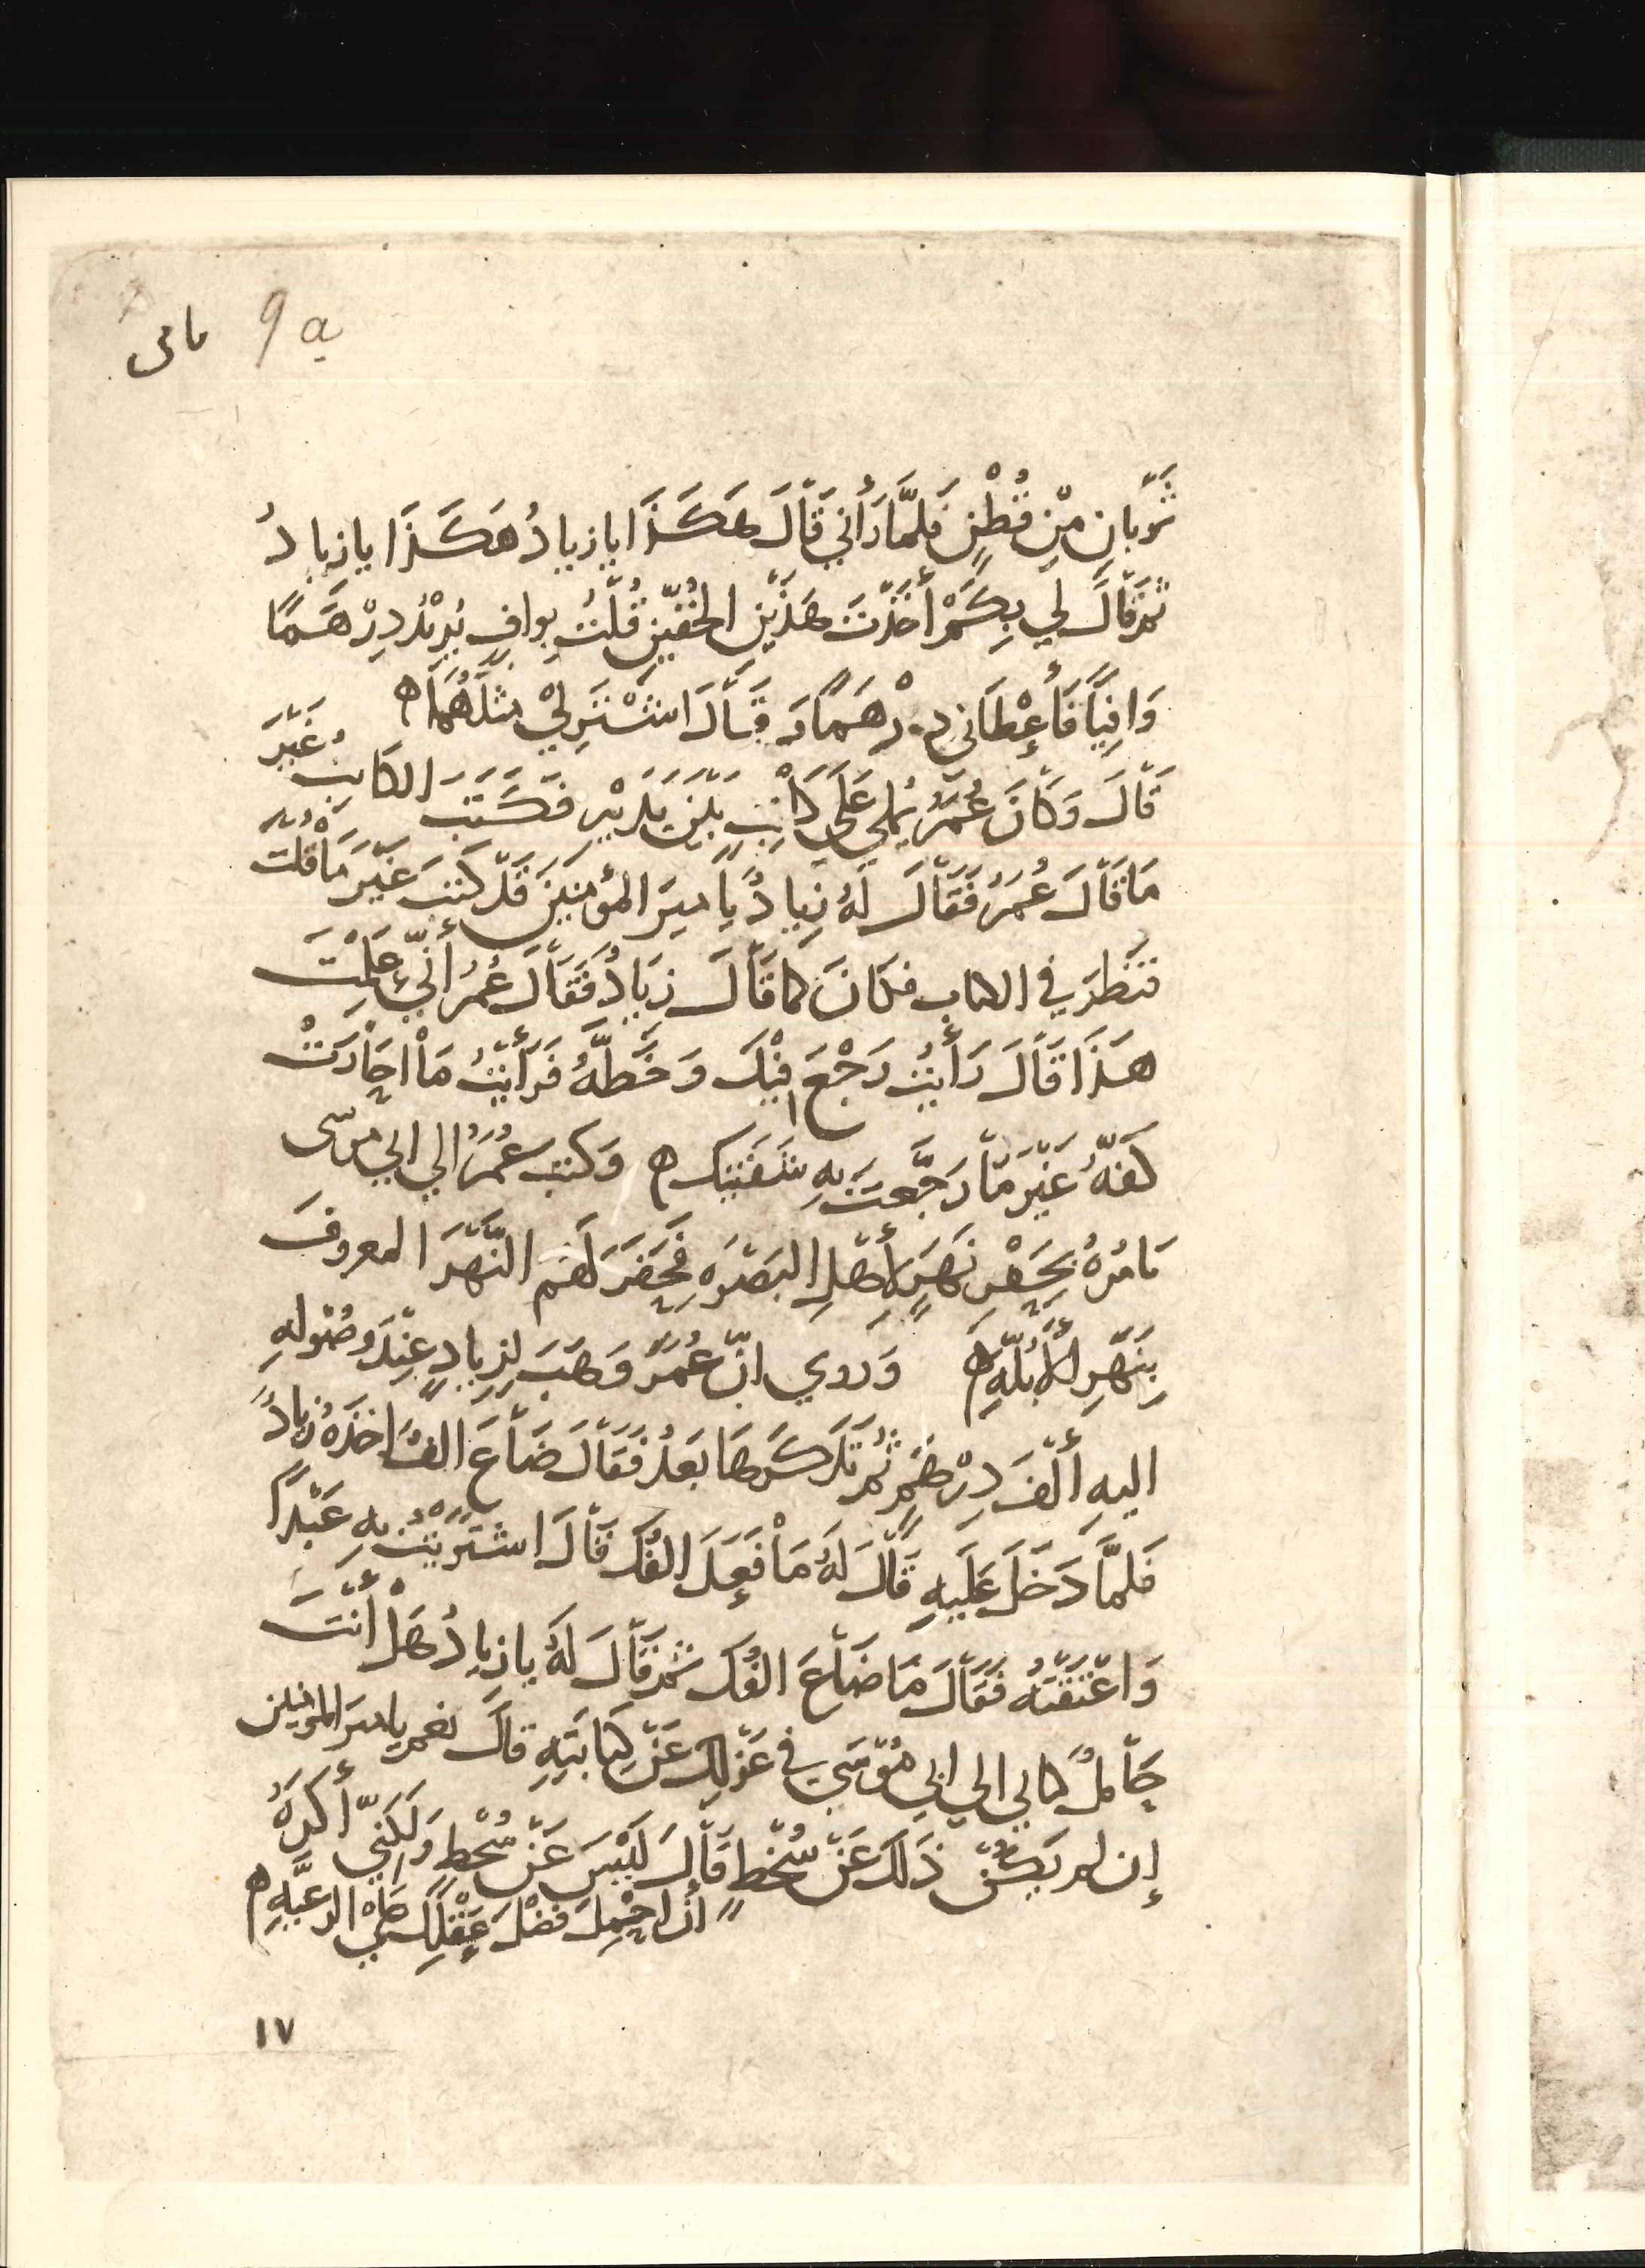 9a
ثَوْبانِ مِنْ قُطْنٍ فَلمَّا رَأٰني قَالَ هَكَذَا يا زيادُ هَكَذَا يا زيادُ
ثم قَالَ لي بِكَمْ أَخَذْتَ هَذَيْنِ الخُفّيْنِ قُلْتُ بِوافٍ يُرِيْدُ دِرْهَمًا
وَافِيًا فَأَعْطَاني دِرْهَمًا وَقَالَ اشْتَرِ لِيْ مثْلَهُمَا ه
قَالَ وَكَانَ عُمَرُ يُملي عَلَى كَاتِبٍ بَيْنَ يَدَيْهِ فَكَتَبَ الكَاتِبُ غَيْرَ
مَا قَالَ عُمَرُ فَقَالَ لَهُ زِيادٌ يا اميرَ المؤمنِينَ قَدْ كتبَ غَيْرَ مَا قُلْتَ
فنَظرَ في الكتاب فكَانَ كما قَالَ زِيَادٌ فَقَالَ عُمَرُ أَنّي عَلِمْتَ
هَذَا قَالَ رَأَيْتُ رَجْعَ فِيْكَ وَخَطَّهُ فَرَأَيْتُ مَا احَارَتْ
كَفّهُ غَيْرَ مَا رَجَّعتَ بِهِ شَفَتَيْكَ ه وَكتبَ عُمَرُ الي ابي موسى
يَامُرهُ بِحَفْرِ نَهَرٍ لأَهْلِ البَصْرَةِ فَحَفَرَ لَهُم النَّهَرَ المعروفَ
بِنَهْرِ الأُبُلَّةِ ه وَروي انّ عُمَرَ وَهَبَ لِزِيادٍ عِنْدَ وصُولِهِ
اليهِ أَلْفَ دِرْهَمٍ ثُمَّ تَذَكَّرَهَا بَعْدُ فَقَالَ ضَاعَ الفٌ اخذَهُ زيادٌ
فَلمَّا دَخَلَ عَلَيهِ قَالَ لَهُ مَا فَعَلَ الفُكَ قَالَ اشْتَرَيْتُ بِهِ عَبْدًا
وَاعْتَقْتُهُ فَقَالَ مَا ضَاعَ الفُكَ ثم قَالَ لَهُ يا زيادُ هَلْ أَنْتَ
حَامِلٌ كتابي الي ابي مُوْسَى في عَزْلِكَ عَنْ كِتَابَتِهِ قالَ نعم يا اميرَ المؤمنين
إن لم يَكُنْ ذَلكَ عَنْ سُخْطٍ قَالَ لَيْسَ عَنْ سُخْطٍ وَلَكِنّي أَكْرَهُ
أنْ احْمِلَ فَضْلَ عَقْلِكَ عَلى الرعيَّةِ ه
١٧